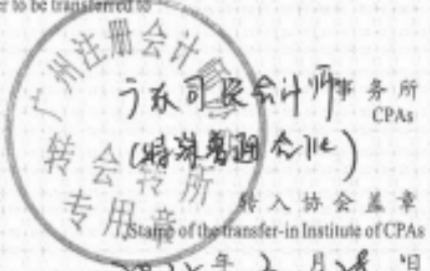 er to be transferred to
广州注册会计
广东司农会计师事务所
CPAs
(特殊普通合伙)
转会转所
专用章
转入协会盖章
Stamp of the transfer-in Institute of CPAs
年 月 日